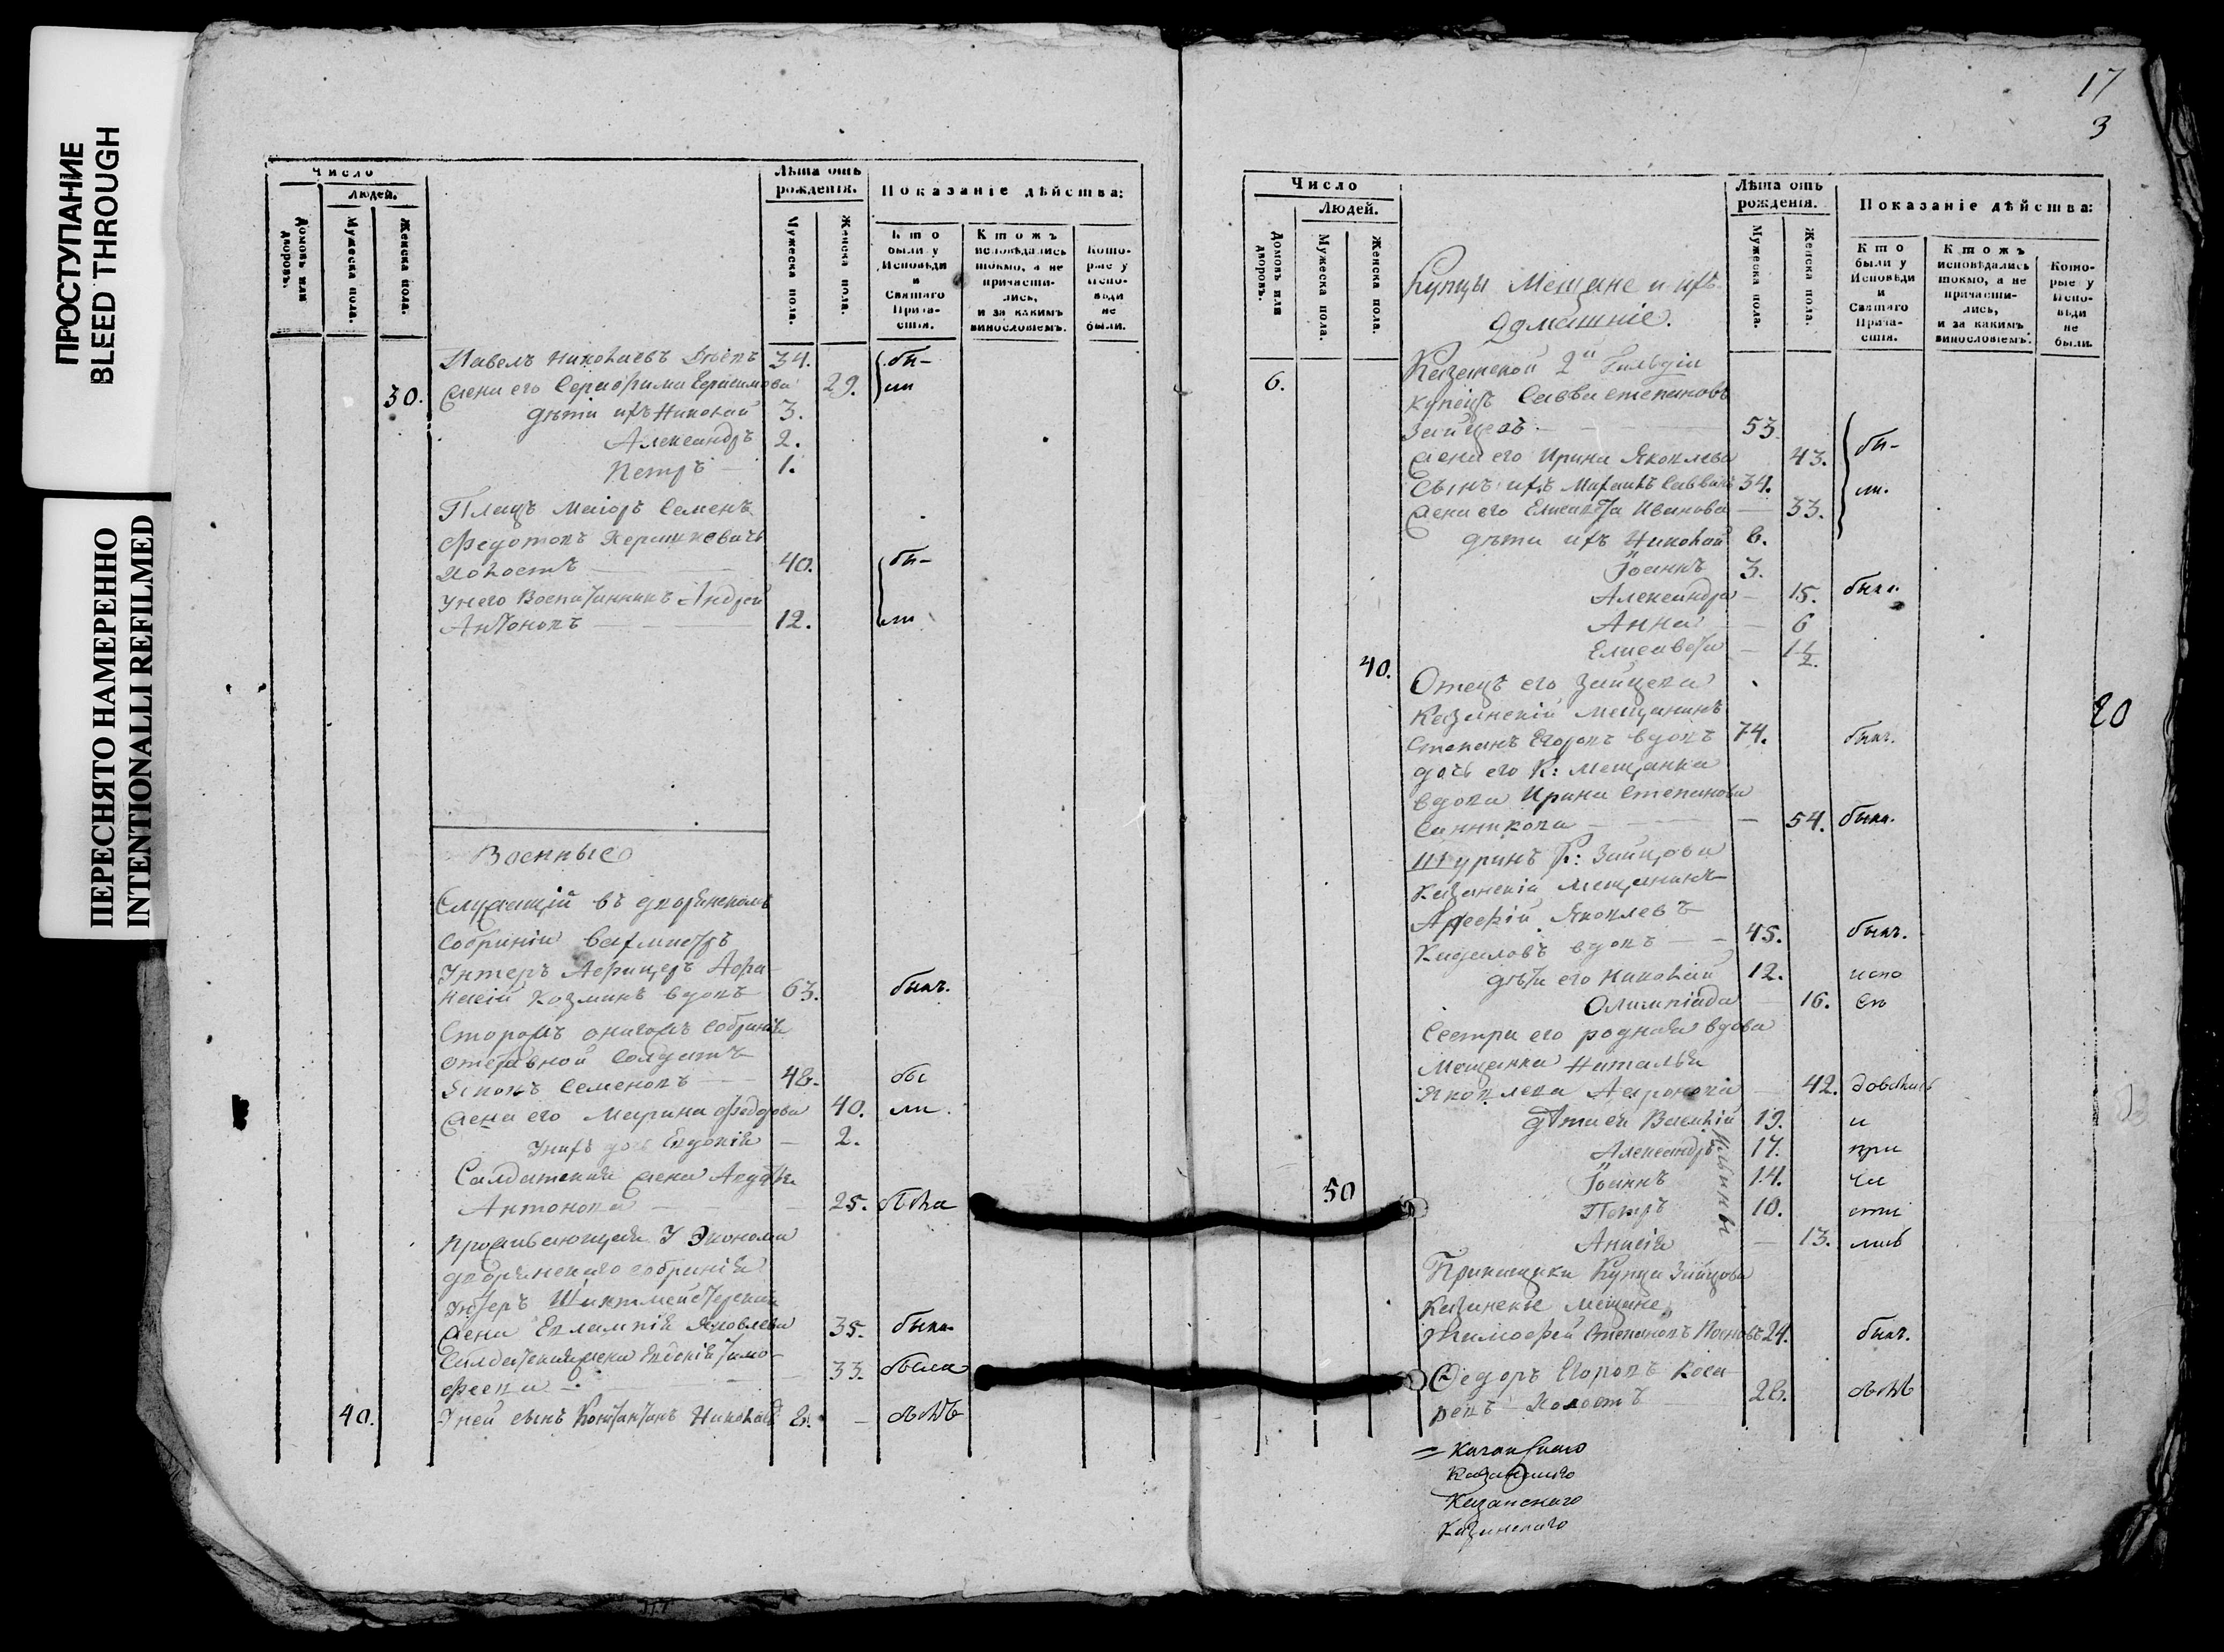 ПРОСТУПАНИЕ
BLEED THROUGH
ПЕРЕСНЯТО НАМЕРЕННО
INTENTIONALLI REFILMED
Число
Людей.
Домовъ или дворовъ.
Мужеска пола.
Женска пола.
Лѣта отъ рожденія.
Мужеска пола.
Женска пола.
Показаніе дѣйства:
Кто были у Исповѣди и Святаго Прича-стія.
Ктожъ исповѣдались токмо, а не причасти-лись, и за какимъ винословіемъ.
Кото-рые у Испо-вѣди не были.
Павелъ Николаевъ 34. бы-
30. жена его Серафима Герасимова 29. ли
дѣти ихъ Николай 3.
Александръ 2.
Петръ 1.
Плацъ Маіоръ Семенъ
Федотовъ
Холостъ 40. бы-
у него Воспитанникъ Андрей
Антоновъ 12. ли
Военные
Служащій въ дворянскомъ
собраніи вахмистръ
Унтеръ Афицеръ Афа-
насій Козминъ вдовъ 63. былъ.
Сторожъ онагожъ собранія
отставной Солдатъ
Яковъ Семеновъ 48. бы
жена его Марина Федорова 40. ли.
У нихъ дочь Евдокія 2.
Салдатская жена Авдотья
Антонова 25. была
Проживающая у Эконома
дворянскаго собранія
Унтеръ Шихтмейстерская
жена Евлампія Яковлева 35. была
Салдатская жена Евдокія Тимо-
феева 33. была
40. У ней сынъ Константинъ Николаевъ 8. былъ
17
3
Число
Людей.
Домовъ или дворовъ.
Мужеска пола.
Женска пола.
Лѣта отъ рожденія.
Мужеска пола.
Женска пола.
Показаніе дѣйства:
Кто были у Исповѣди и Святаго Прича-стія.
Ктожъ исповѣдались токмо, а не причасти-лись, и за какимъ винословіемъ.
Кото-рые у Испо-вѣди не были.
Купцы Мещане и ихъ
домашніе.
6. Казанской 2й Гильдіи
купецъ Савва Степановъ
Зайцевъ 53
жена его Ирина Яковлева 43. бы-
Сынъ ихъ Михаилъ Саввинъ 34. ли.
жена его Елисавета Иванова 33.
дѣти ихъ Николай 8.
Іоаннъ 3.
Александра 15. была
Анна 6
Елисавета 1 1/2.
40. Отецъ его Зайцева
Казанскій мещанинъ
Степанъ Егоровъ вдовъ 74. былъ.
20
дочь его К: мещанка
вдова Ирина Степанова
Санникова 54. была.
Шуринъ К: Зайцова
Казанскій Мещанинъ
Арефій Яковлевъ
вдовъ 45. былъ.
дѣти его Николай 12. испо
Олимпіада 16. вѣ
Сестра его родная вдова
Мещанка Наталья
Яковлева 42. довались
дѣти ея Василій 19. и
Александръ 17. при
50 Іоаннъ 14. ча
Петръ 10. сти
Анисія 13. лись
Ильины
Прикащики Купца Зайцова
Казанскіе мещане,
Тимофей Степановъ 24. былъ.
Ѳедоръ Егоровъ Коса-
ревъ Холостъ 28. былъ
Казанскаго
Казанскаго
Казанскаго